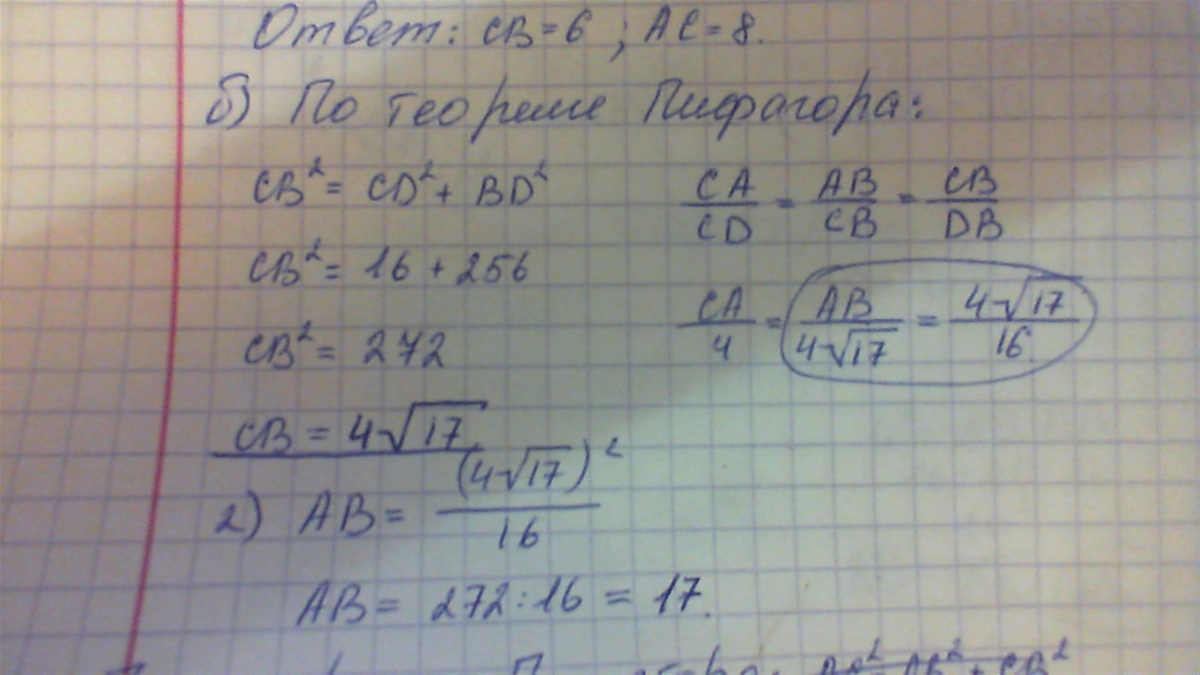 Ответ: CB = 6 ; AC = 8.
б) По теореме Пифагора:
CB² = CD² + BD²
CB² = 16 + 256
CB² = 272
CB = 4√17
CA/CD = AB/CB = CB/DB
CA/4 = AB/4√17 = 4√17/16
2) AB = (4√17)²/16
AB = 272 : 16 = 17.